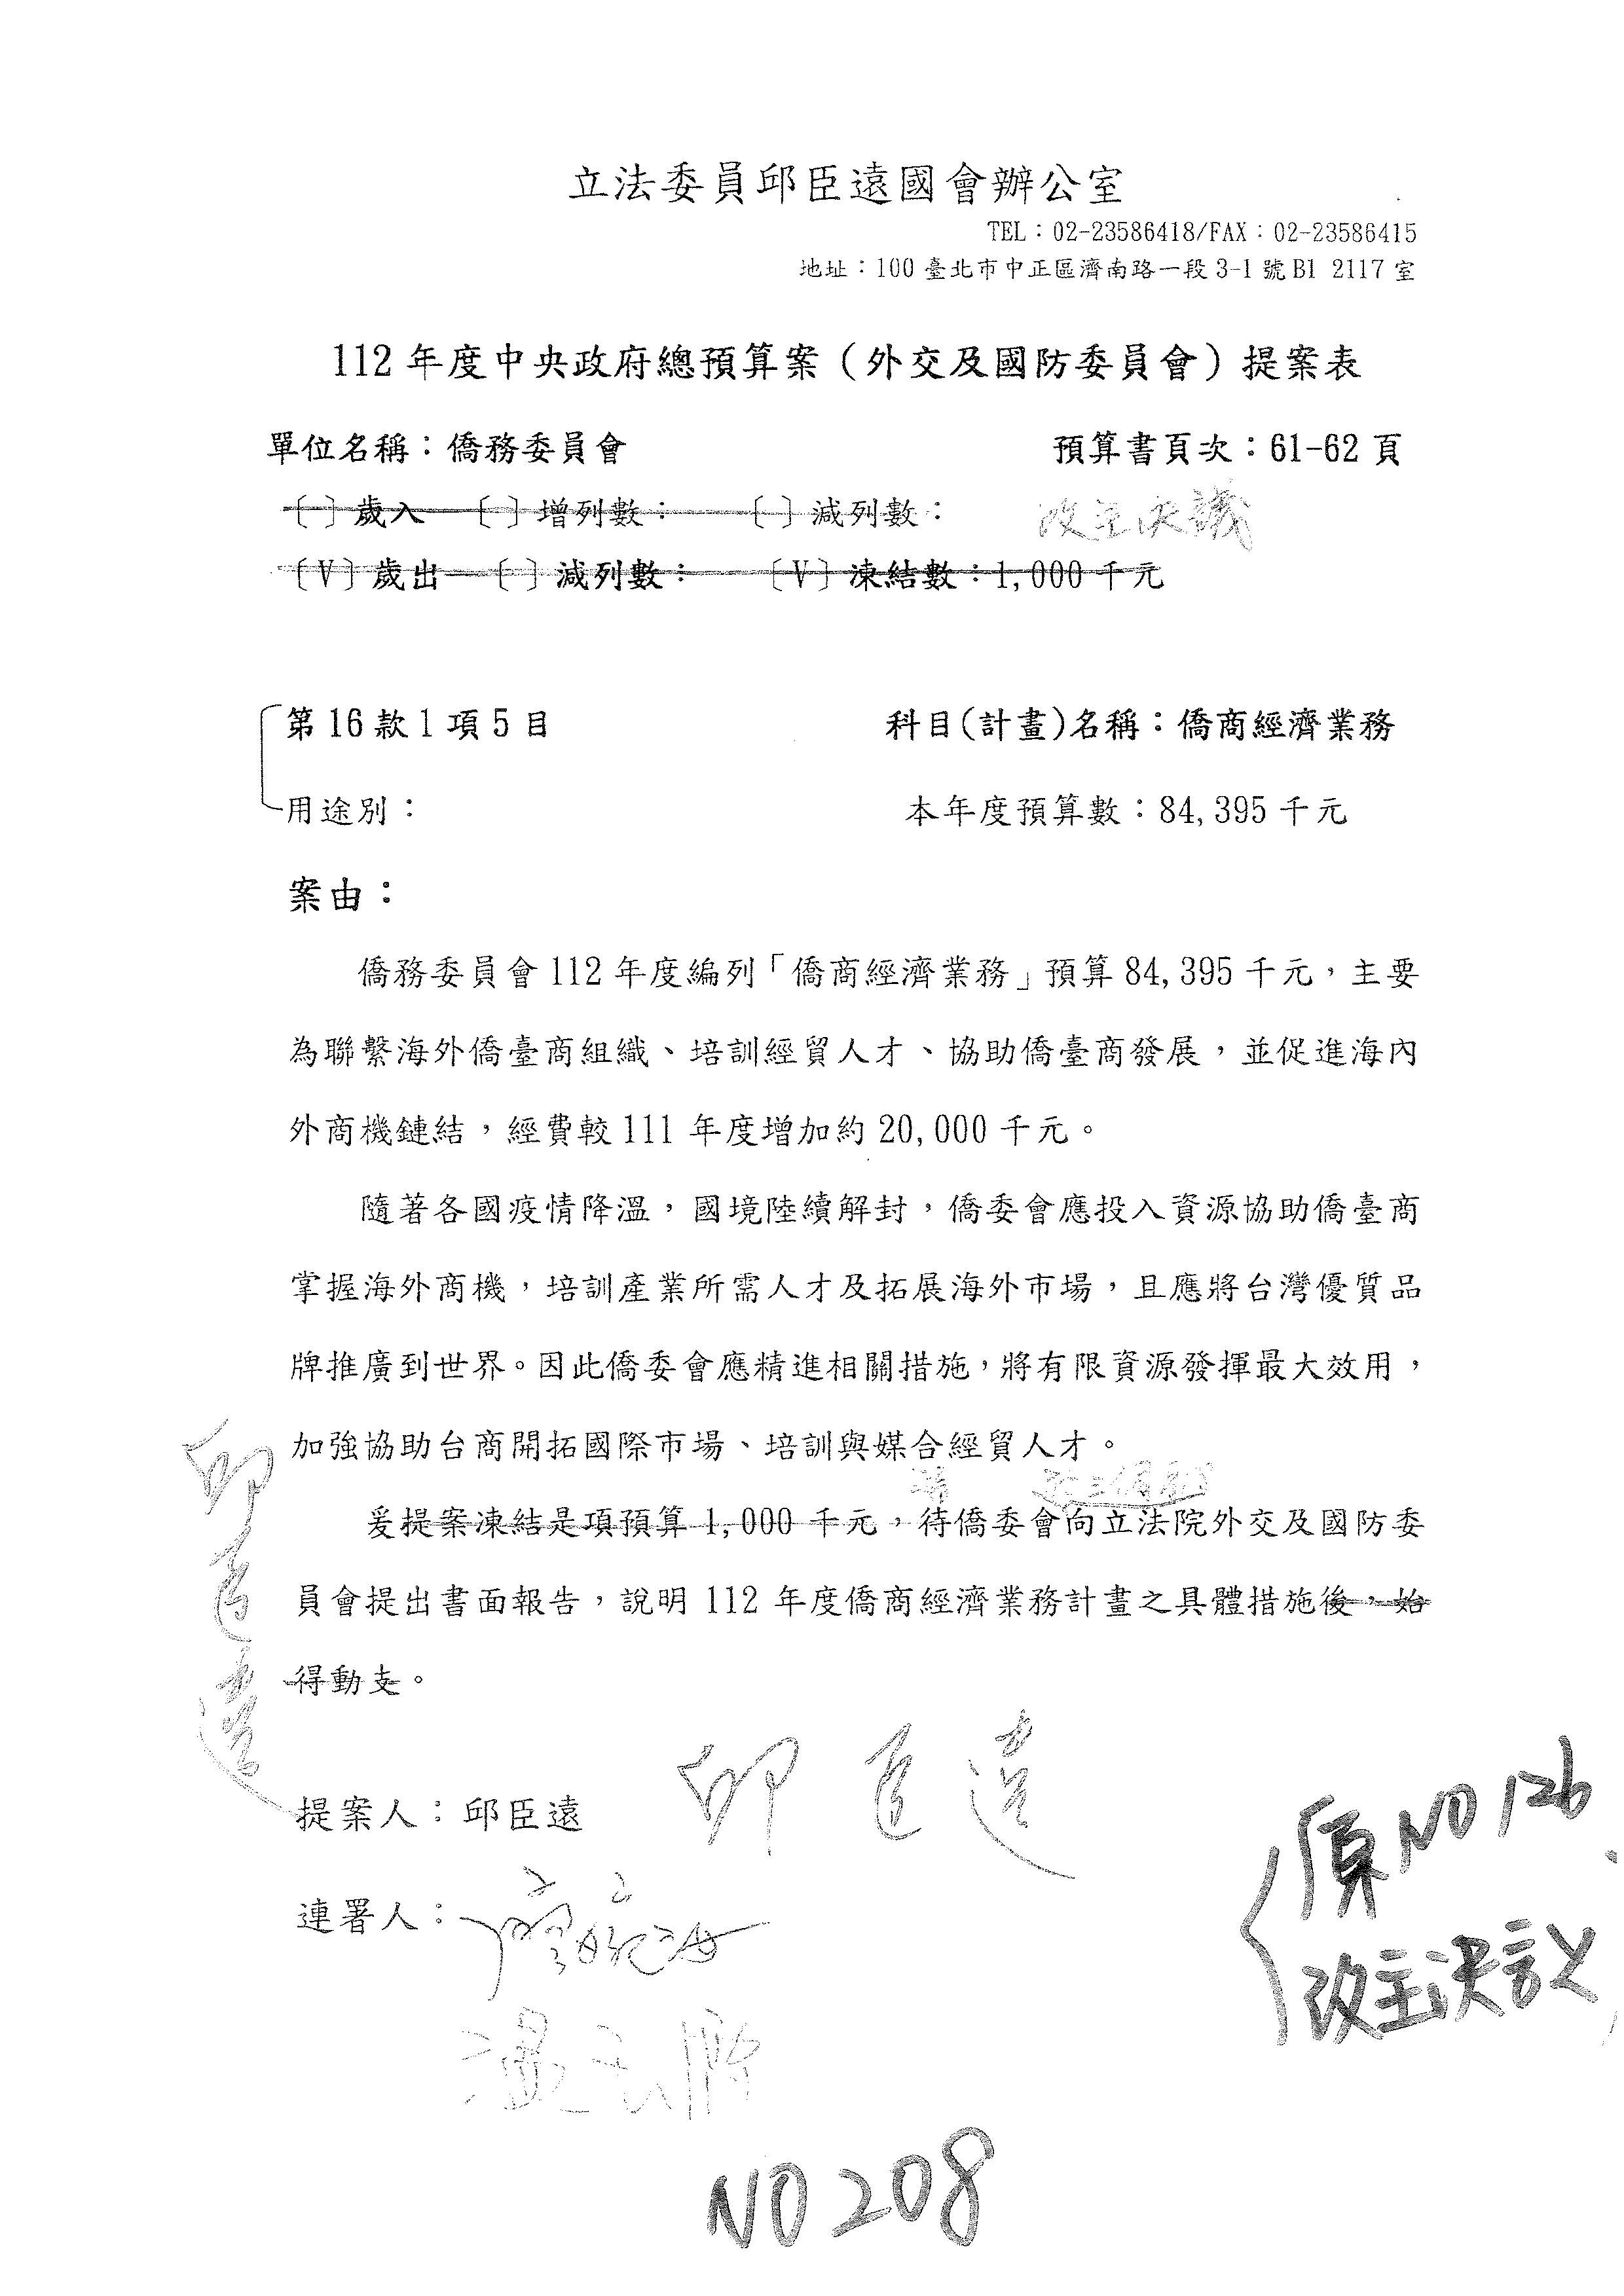 立法委員邱臣遠國會辦公室
TEL：02-23586418/FAX：02-23586415
地址：100 臺北市中正區濟南路一段 3-1 號 B1 2117 室
112 年度中央政府總預算案（外交及國防委員會）提案表
單位名稱：僑務委員會 預算書頁次：61-62 頁
〔 〕歲入 〔 〕增列數： 〔 〕減列數： 改主決議
〔V〕歲出 〔 〕減列數： 〔V〕凍結數：1,000 千元
第 16 款 1 項 5 目 科目(計畫)名稱：僑商經濟業務
用途別： 本年度預算數：84,395 千元
案由：
僑務委員會 112 年度編列「僑商經濟業務」預算 84,395 千元，主要
為聯繫海外僑臺商組織、培訓經貿人才、協助僑臺商發展，並促進海內
外商機鏈結，經費較 111 年度增加約 20,000 千元。
隨著各國疫情降溫，國境陸續解封，僑委會應投入資源協助僑臺商
掌握海外商機，培訓產業所需人才及拓展海外市場，且應將台灣優質品
牌推廣到世界。因此僑委會應精進相關措施，將有限資源發揮最大效用，
加強協助台商開拓國際市場、培訓與媒合經貿人才。
請
爰提案凍結是項預算 1,000 千元，待僑委會向立法院外交及國防委
員會提出書面報告，說明 112 年度僑商經濟業務計畫之具體措施後，始
得動支。
邱臣遠
提案人：邱臣遠 邱臣遠
連署人：
溫玉霞
原 NO 126
改主決議
NO 208